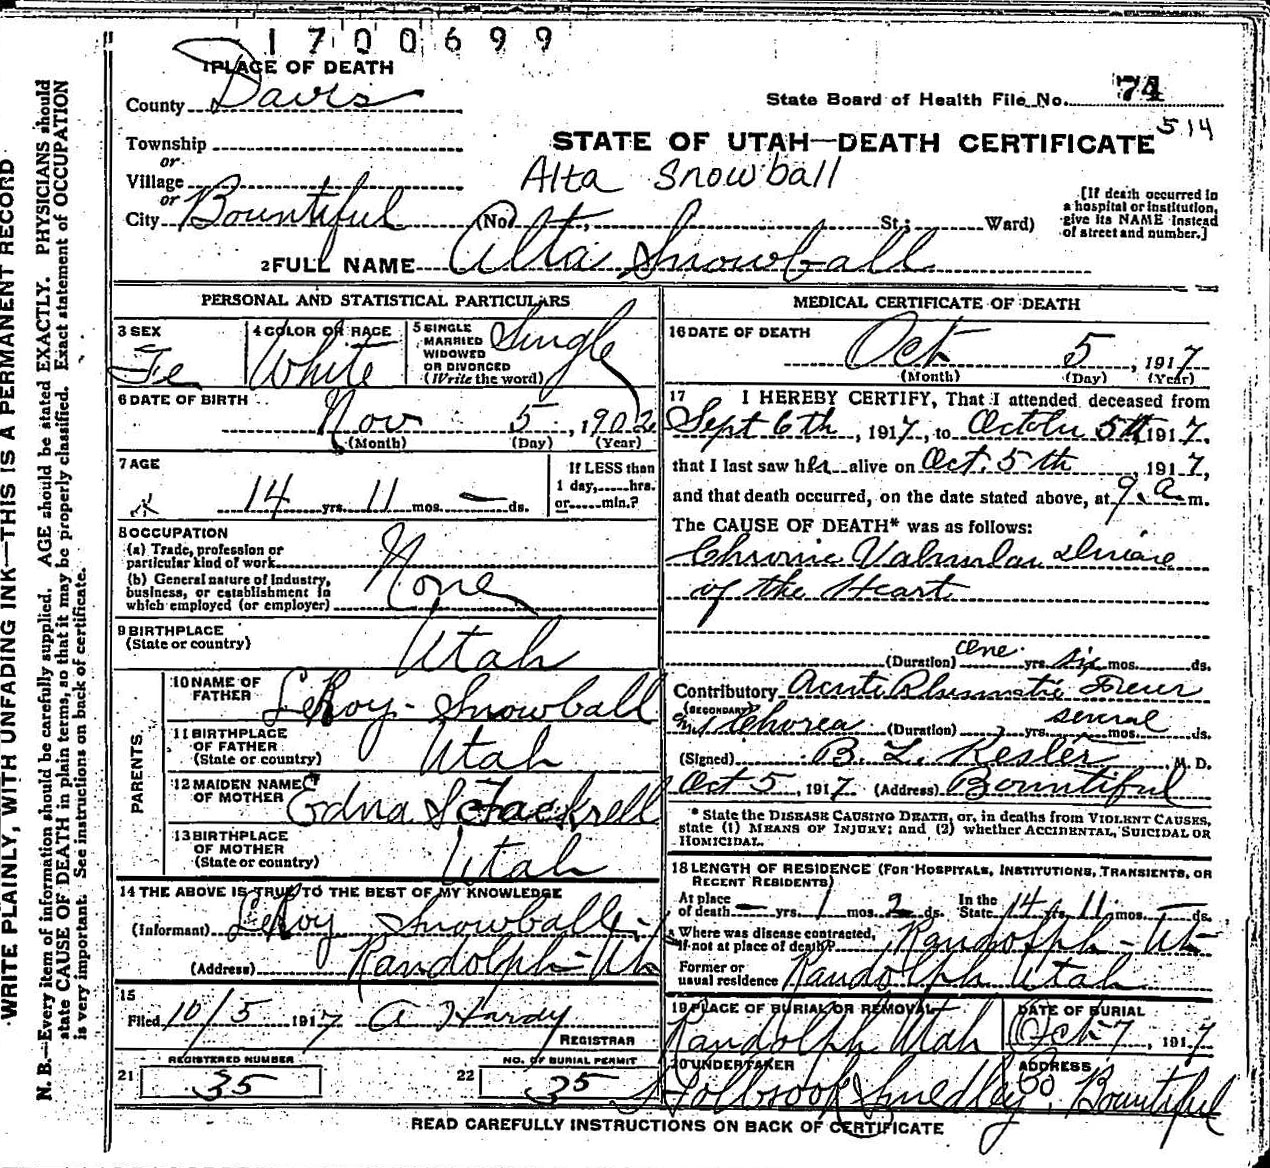 1700699
1 PLACE OF DEATH
County Davis
State Board of Health File No. 74
514
STATE OF UTAH—DEATH CERTIFICATE
Township
or
Village
or
Alta Snowball
City Bountiful (No. , St.; Ward)
[If death occurred in
a hospital or institution,
give its NAME instead
of street and number.]
2 FULL NAME Alta Snowball
PERSONAL AND STATISTICAL PARTICULARS
3 SEX
Fe
4 COLOR OR RACE
White
5 SINGLE
MARRIED
WIDOWED
OR DIVORCED
(Write the word)
Single
6 DATE OF BIRTH
Nov 5, 1902
(Month) (Day) (Year)
7 AGE
14 yrs. 11 mos. — ds.
If LESS than
1 day, hrs.
or min.?
8 OCCUPATION
(a) Trade, profession or
particular kind of work
(b) General nature of Industry,
business, or establishment in
which employed (or employer)
None
9 BIRTHPLACE
(State or country)
Utah
PARENTS
10 NAME OF
FATHER
LeRoy Snowball
11 BIRTHPLACE
OF FATHER
(State or country)
Utah
12 MAIDEN NAME
OF MOTHER
Edna
13 BIRTHPLACE
OF MOTHER
(State or country)
Utah
14 THE ABOVE IS TRUE TO THE BEST OF MY KNOWLEDGE
(Informant) LeRoy Snowball
(Address) Randolph - Ut
15
Filed 10/5 1917 A Hardy
REGISTRAR
REGISTERED NUMBER
21 35
NO. OF BURIAL PERMIT
22 35
MEDICAL CERTIFICATE OF DEATH
16 DATE OF DEATH
Oct 5, 1917
(Month) (Day) (Year)
17 I HEREBY CERTIFY, That I attended deceased from
Sept 6th, 1917, to October 5th 1917.
that I last saw her alive on Oct. 5th, 1917,
and that death occurred, on the date stated above, at 9 a m.
The CAUSE OF DEATH* was as follows:
Chronic Valvular disease
of the Heart
(Duration) one yrs. six mos. ds.
Contributory Acute Rheumatic Fever
(SECONDARY)
Chorea (Duration) yrs. several mos. ds.
(Signed) B. L. Kesler M. D.
Oct 5, 1917 (Address) Bountiful
* State the DISEASE CAUSING DEATH, or, in deaths from VIOLENT CAUSES,
state (1) MEANS OF INJURY; and (2) whether ACCIDENTAL, SUICIDAL OR
HOMICIDAL.
18 LENGTH OF RESIDENCE (FOR HOSPITALS, INSTITUTIONS, TRANSIENTS, OR
RECENT RESIDENTS)
At place
of death — yrs. 1 mos. 2 ds. In the
State 14 yrs. 11 mos. — ds.
Where was disease contracted,
if not at place of death? Randolph - Ut
Former or
usual residence Randolph Utah
19 PLACE OF BURIAL OR REMOVAL
Randolph Utah
DATE OF BURIAL
Oct 7, 1917
20 UNDERTAKER
Holbrook Smedley Co
ADDRESS
Bountiful
READ CAREFULLY INSTRUCTIONS ON BACK OF CERTIFICATE
WRITE PLAINLY, WITH UNFADING INK—THIS IS A PERMANENT RECORD
N. B.—Every item of information should be carefully supplied. AGE should be stated EXACTLY. PHYSICIANS should
state CAUSE OF DEATH in plain terms, so that it may be properly classified. Exact statement of OCCUPATION
is very important. See instructions on back of certificate.